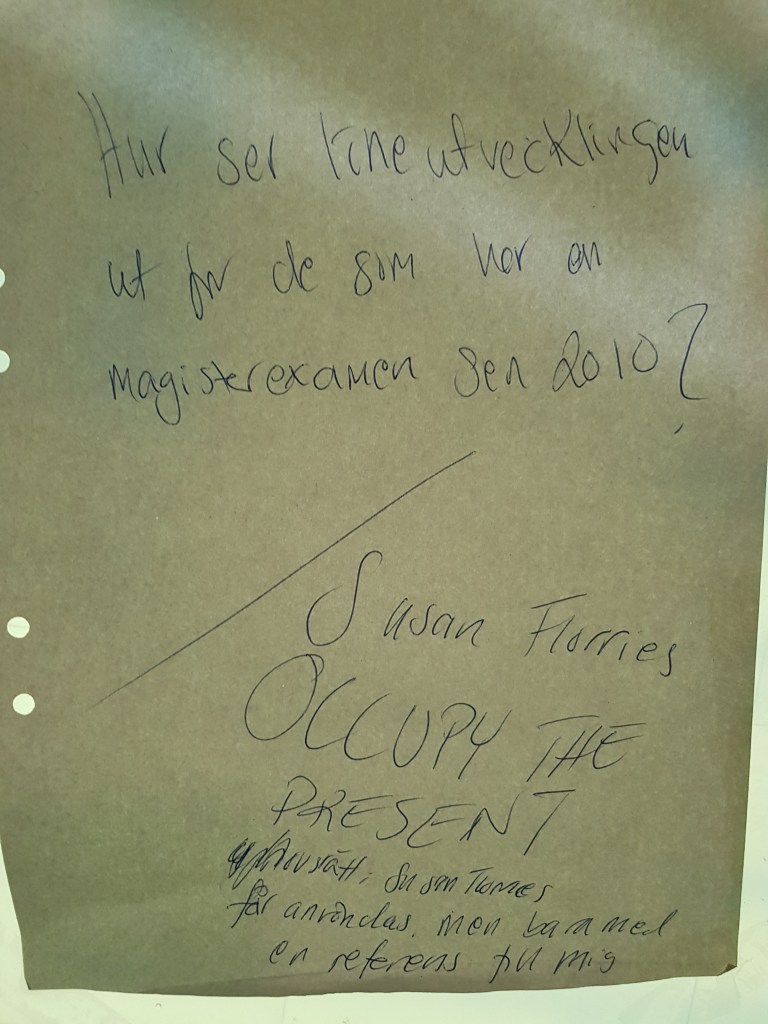 Hur ser löneutvecklingen
ut för de som har en
magisterexamen sen 2010?
Susan Florries
OCCUPY THE
PRESENT
upphovsrätt: Susan Florries
får användas, men bara med
en referens till mig